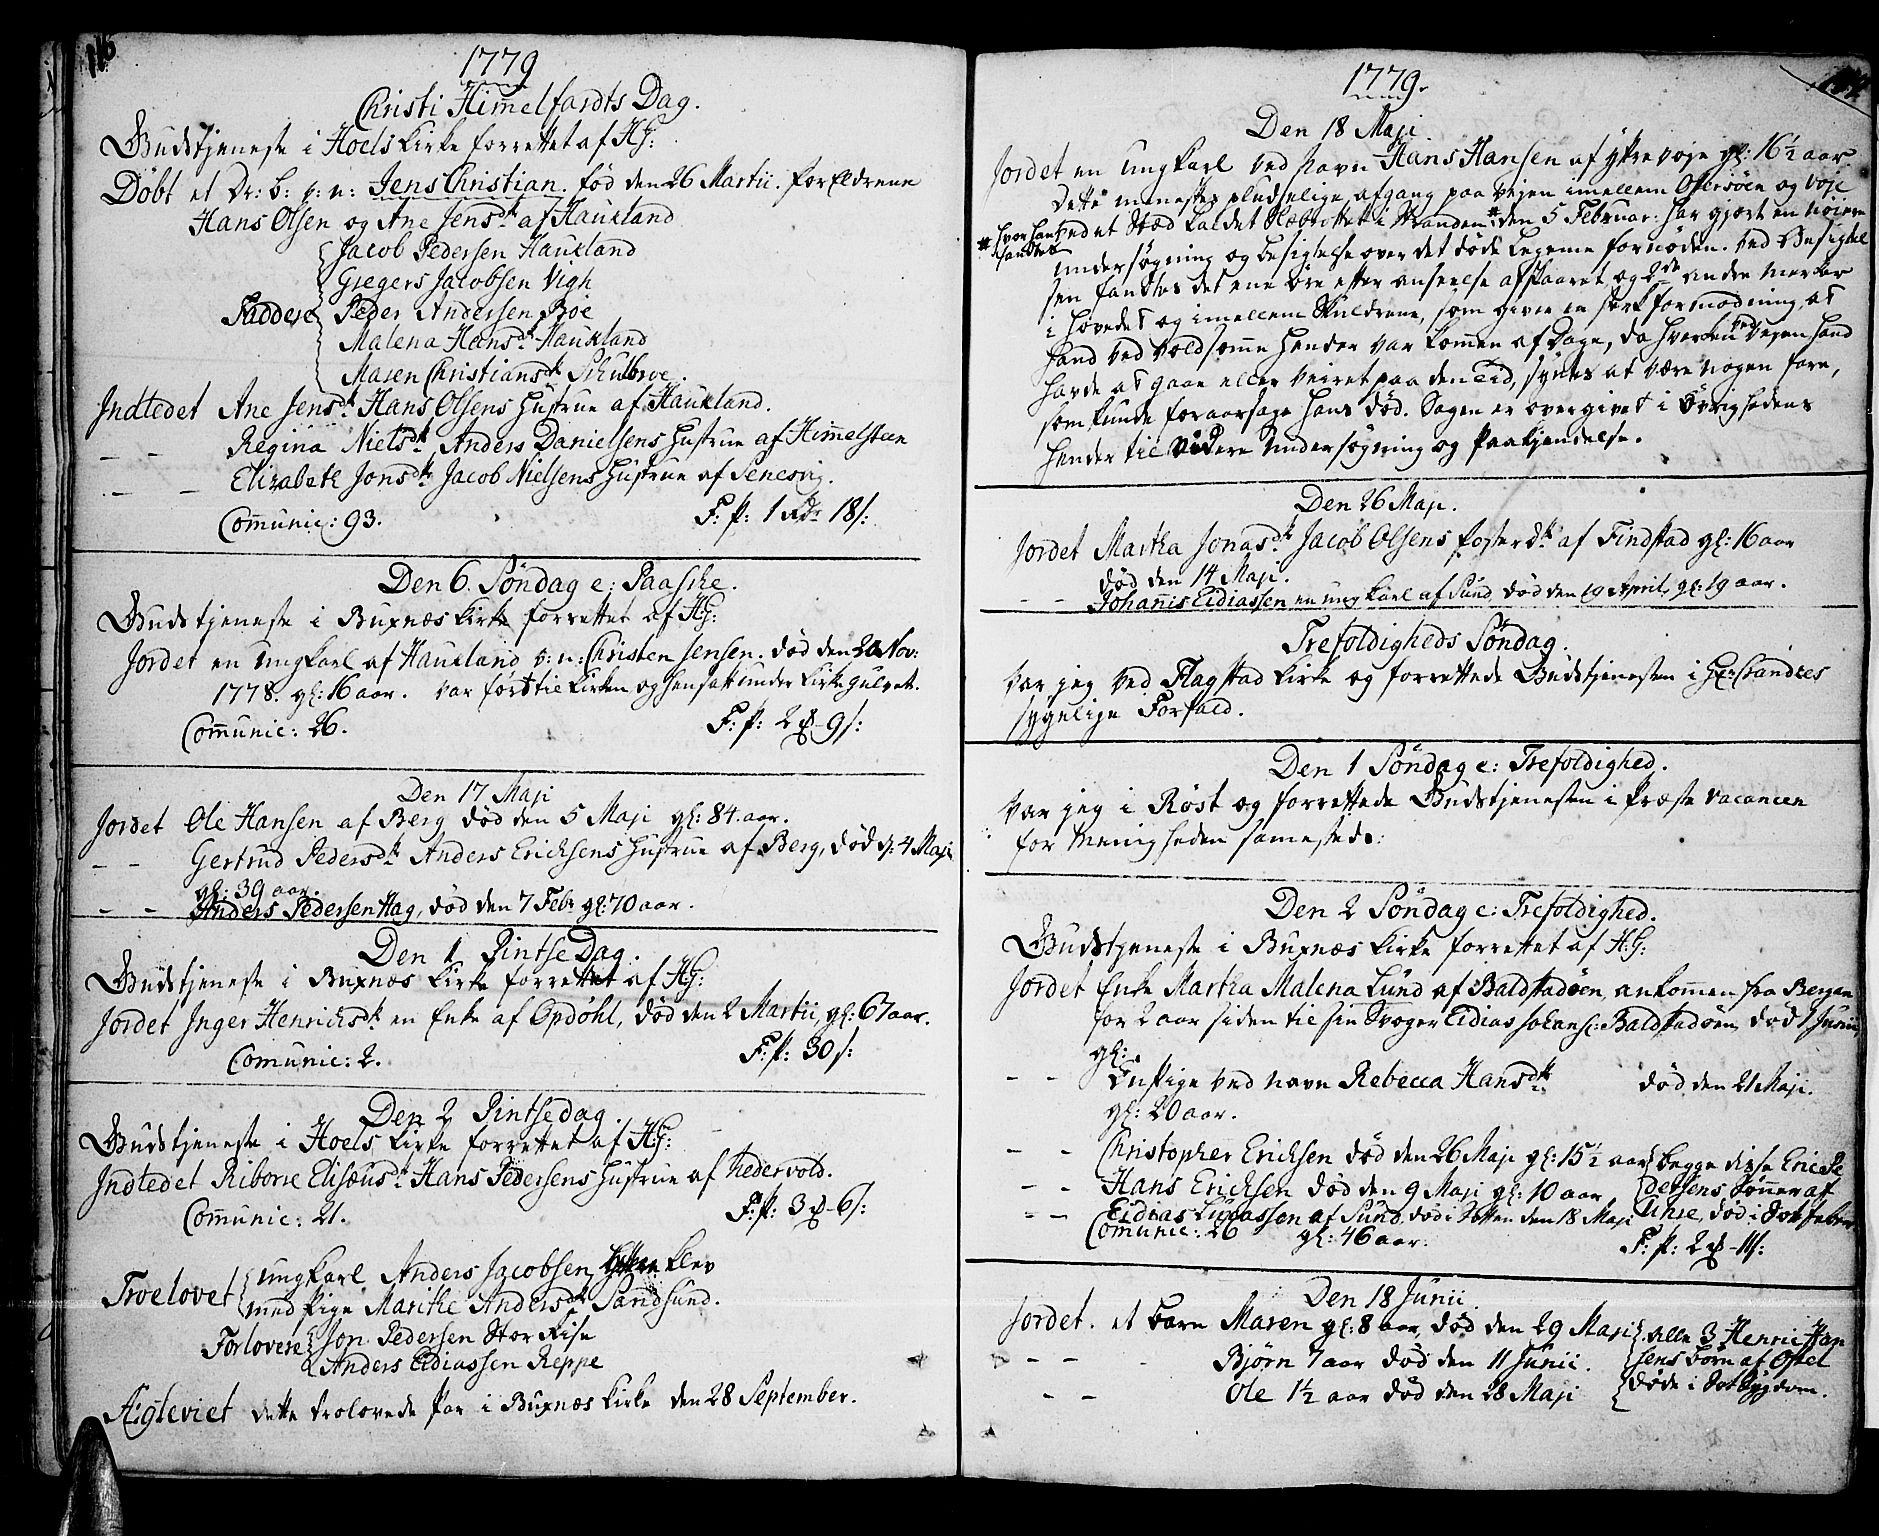 116
1779
Christi Himmelfardts Dag.
Gudstjeneste i Hoels Kirke forrettet af HG:
Døbt et Dr: b: v: n: Jens Christian. fød den 26 Martii. forældrene
Hans Olsen og Ane Jensdtr af Haukland
Jacob Pedersen Haukland
Gregers Jacobsen Vigh
Faddere Peder Andersen Bøe
Malena Hansdtr Haukland
Maren Christiansdtr
Indledet Ane Jensdtr Hans Olsens Hustrue af Haukland.
- - Regina Nielsdtr Anders Danielsens Hustrue af Himmelsteen
- - Elizabeth Jonsdtr Jacob Nielsens Hustrue af Senesvig.
Comunic: 93. F: P: 1 Rdr 18 s:
Den 6 Søndag e: Paaske.
Gudstjeneste i Buxnæs Kirke forrettet af HG:
Jordet en ungkarl af Haukland v: n: Christen Jensen. død den 20 Nov:
1778. gl: 16 aar. var ført til Kirken og hensatt under Kirke gulvet.
Comunic: 26. F: P: 2 ₰ 9 s:
Den 17 Maji
Jordet Ole Hansen af Berg død den 5 Maji gl: 84 aar.
- - Gertrud Pedersdtr Anders Ericksens Hustrue af Berg, død d: 4 Maji
gl: 39 aar.
- - Anders Pedersen Hag, død den 7 Febr gl: 70 aar.
Den 1 Pintse Dag.
Gudstjeneste i Buxnæs Kirke forrettet af HG:
Jordet Inger Henrichsdtr en Enke af Opdøhl, død den 2 Martii, gl: 67 aar.
Comunic: 2. F: P: 30 s:
Den 2 Pintsedag.
Gudstjeneste i Hoels Kirke forrettet af HG:
Indledet Riborre Elisæusdtr Hans Pedersens Hustrue af Nedervold.
Comunic: 21. F: P: 3 ₰ 6 s:
Troelovet ungkarl Anders Jacobsen Klev
med pige Marithe Andersdtr Sandsund.
Forlovere Jon Pedersen Stor Fise
Anders Eidiassen Reppe
Ægteviet dette trolovede Par i Buxnæs Kirke den 28 September.
1779.
Den 18 Maji
Jordet en ungkarl ved Navn Hans Hansen af Yttre Voje gl: 16½ aar.
Dette Menneskes pludselige afgang paa Vejen imellem Ofersøen og Voje
ved et Stæd kaldet i Stranden # den 5 Februar: har gjort en nøiere
# hvor hand
fandtes
undersøgning og besigtelse over det døde Legeme fornøden. Ved Besigtel
sen fandtes det ene øre efter anseelse afskaaret og 2de andre Merker
i Hovedet og imellem Skuldrene, som giver en sterk formodning, at
hand ved voldsomme Hender var kommen af Dage, da hverken Vejen hand
havde at gaae eller Veiret paa den Tid, synes at være nogen fare,
som kunde foraarsage hans død. Sagen er overgivet i Øvrighedens
Hender til videre undersøgning og Paakjendelse.
Den 26 Maji.
Jordet Martha Jonasdtr Jacob Olsens Fosterdtr af Findstad gl: 16 aar
død den 14 Maji.
- - Johannis Eidiassen en ung karl af Sund, død den 19 April, gl: 19 aar.
Trefoldigheds Søndag.
Var jeg ved Flagstad Kirke og forrettede Gudstjenesten i Hr: Brandtes
sygelige Forfald.
Den 1 Søndag e: Trefoldighed.
Var jeg i Røst og forrettede Gudstjenesten i Præste Vacancen
for Menigheden samesteds:
Den 2 Søndag e: Trefoldighed.
Gudstjeneste i Buxnæs Kirke forrettet af H: G:
Jordet Enke Martha Malena Lund af Balstadøen, ankommen fra Bergen
for 2 aar siden til sin Svoger Eidias Johans: Balstadøen, død 1 Junii,
gl:
- - En pige ved navn Rebecca Hansdtr død den 21 Maji.
gl: 20 aar.
- - Christopher Ericksen død den 26 Maji gl: 15½ aar begge disse Erick Pe
- - Hans Ericksen død den 9 Maji gl: 10 aar, dersens Sønner af
- - Eidias Eidiassen af Sund, død i Sotten den 18 Maji Unse, død i Sot feber
Comunic: 26 gl: 46 aar. F: P: 2 ₰ 11 s:
Den 18 Junii
Jordet. et barn Maren gl: 8 aar, død den 29 Maji alle 3 Henric Han
- - Bjørn 7 aar død den 11 Junii. sens børn af Ostel
- - Ole 1½ aar død den 28 Maji døde i Sot Sygdom.